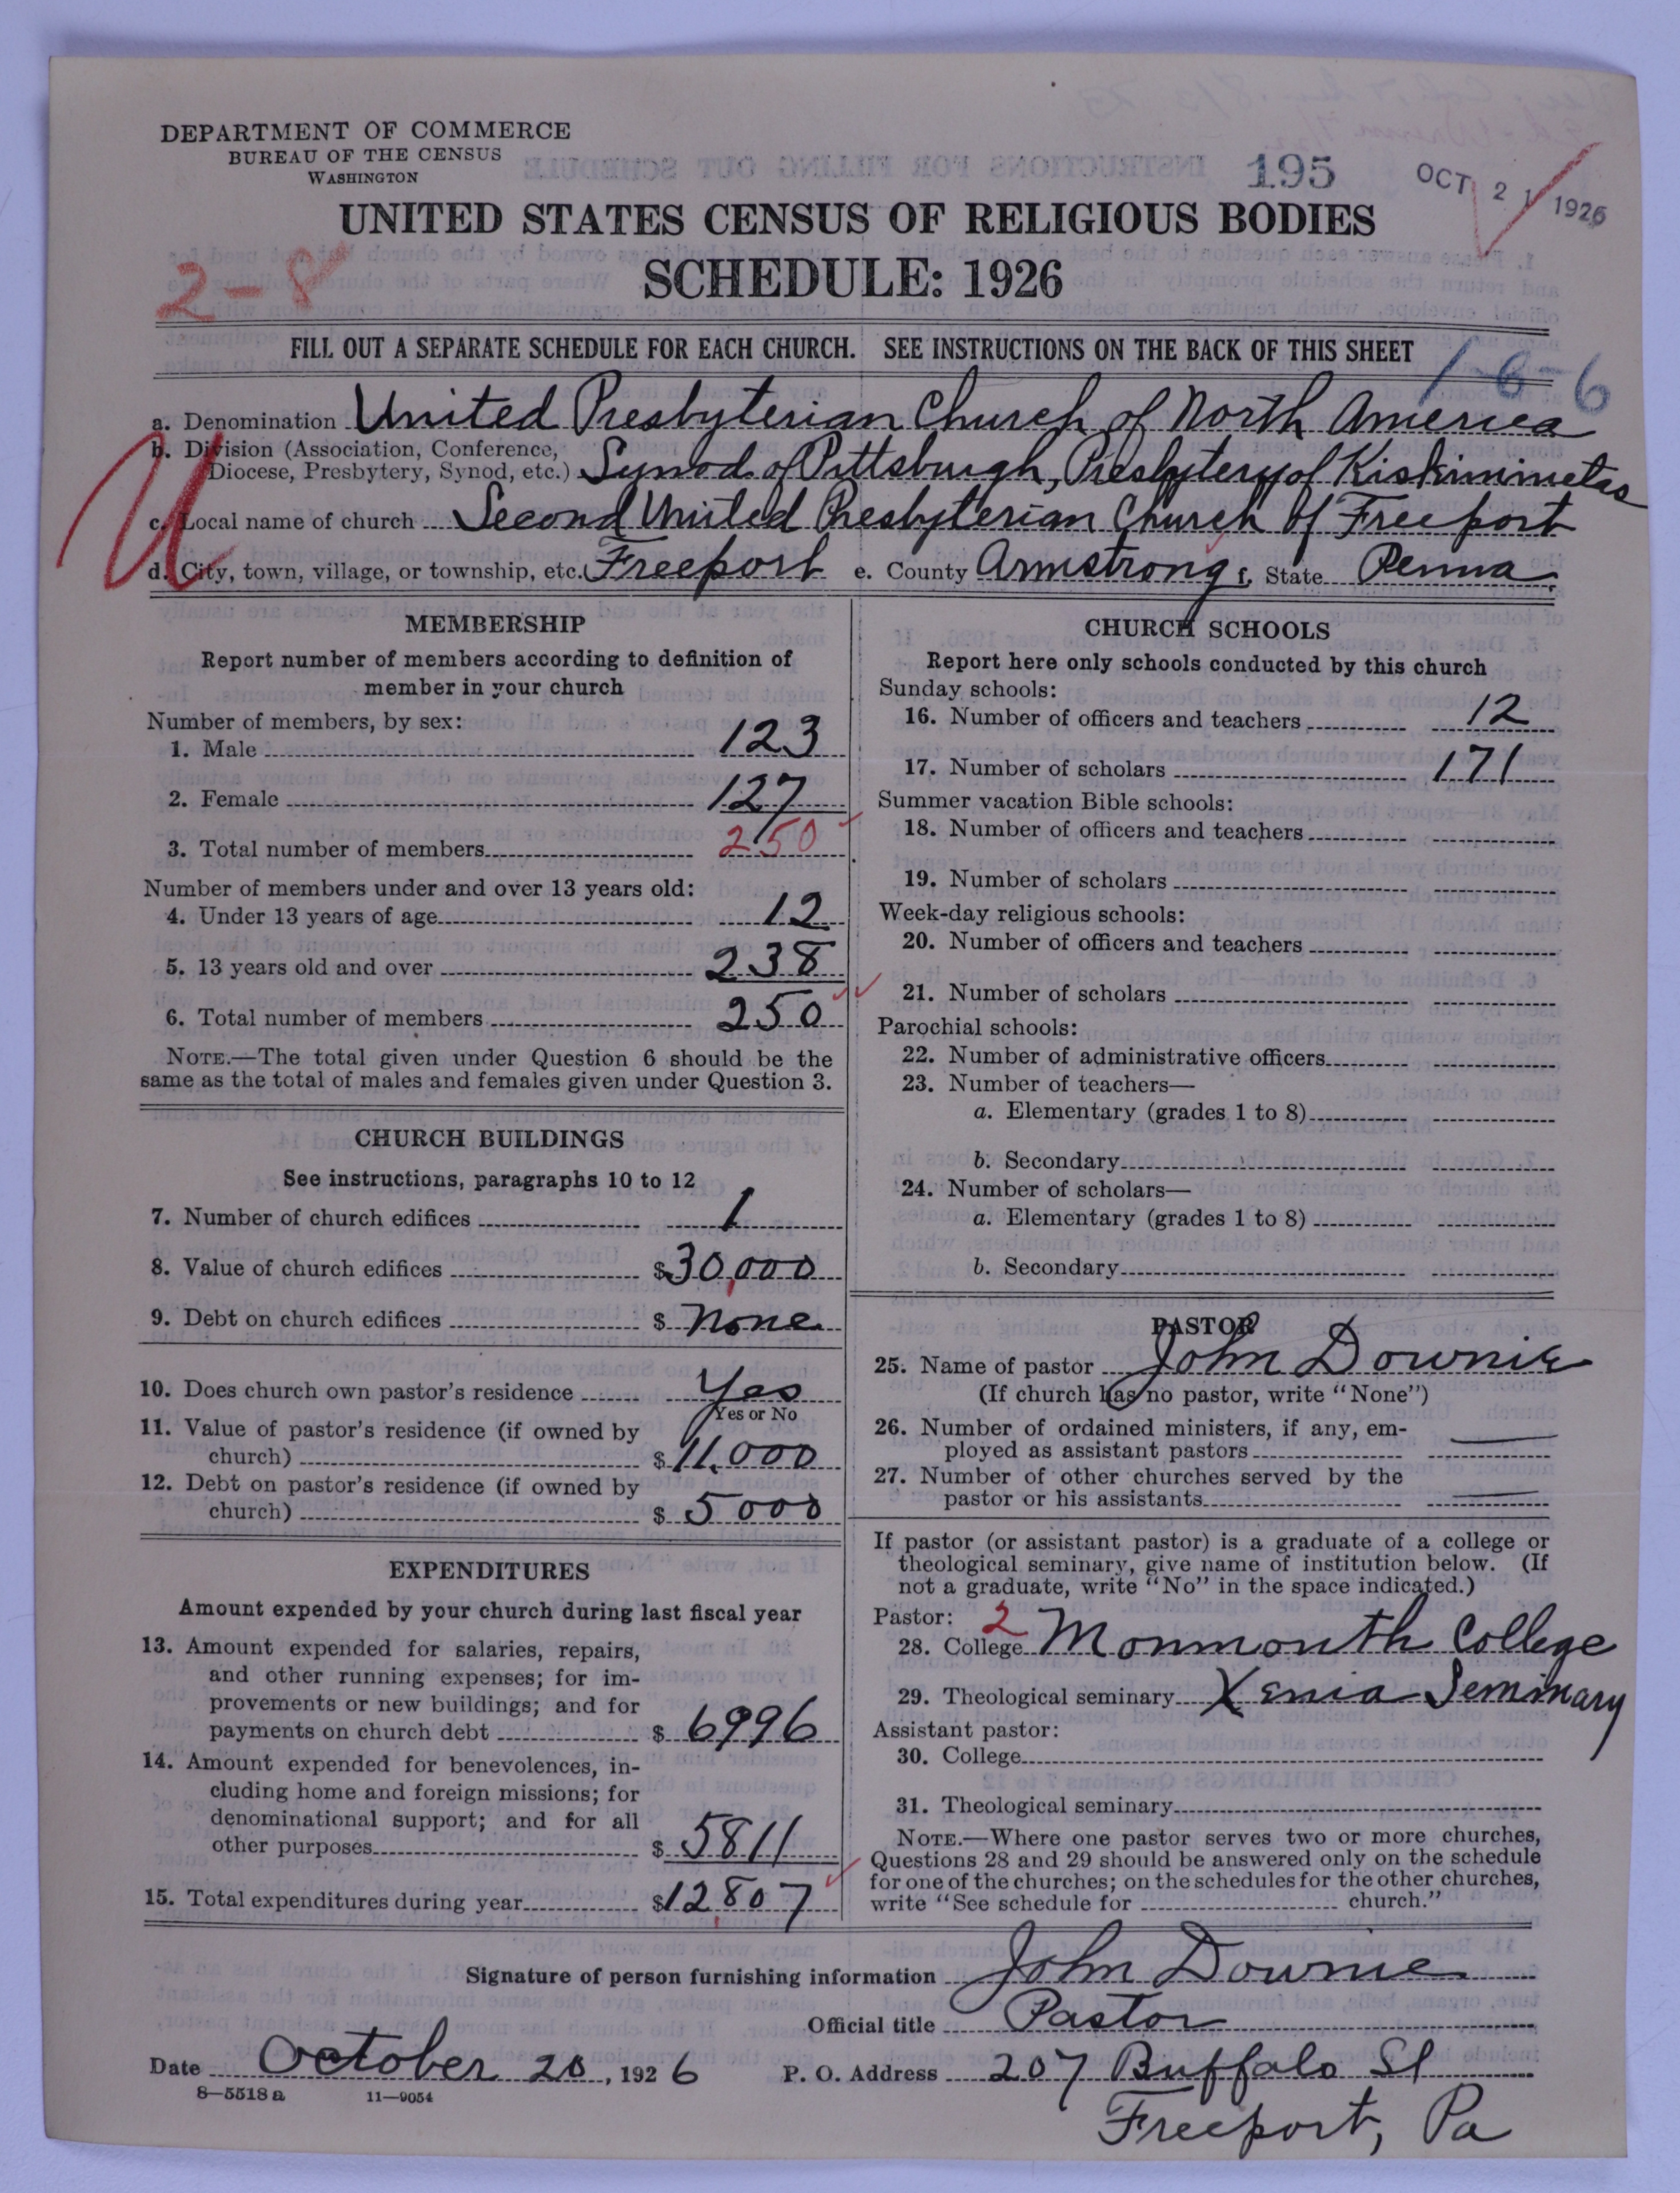 DEPARTMENT OF COMMERCE
BUREAU OF THE CENSUS
WASHINGTON
195
OCT 21 1926
UNITED STATES CENSUS OF RELIGIOUS BODIES
SCHEDULE: 1926
2-8
FILL OUT A SEPARATE SCHEDULE FOR EACH CHURCH. SEE INSTRUCTIONS ON THE BACK OF THIS SHEET
1-6-6
a. Denomination United Presbyterian Church of North America
b. Division (Association, Conference,
Diocese, Presbytery, Synod, etc.) Synod of Pittsburgh, Presbytery of Kiskiminetas
U
c. Local name of church Second United Presbyterian Church of Freeport
d. City, town, village, or township, etc. Freeport e. County Armstrong f. State Penna
MEMBERSHIP
Report number of members according to definition of
member in your church
Number of members, by sex:
1. Male 123
2. Female 127
3. Total number of members 250
Number of members under and over 13 years old:
4. Under 13 years of age 12
5. 13 years old and over 238
6. Total number of members 250
NOTE.—The total given under Question 6 should be the
same as the total of males and females given under Question 3.
CHURCH BUILDINGS
See instructions, paragraphs 10 to 12
7. Number of church edifices 1
8. Value of church edifices $30,000
9. Debt on church edifices $ None
10. Does church own pastor's residence Yes
Yes or No
11. Value of pastor's residence (if owned by
church) $11,000
12. Debt on pastor's residence (if owned by
church) $ 5000
EXPENDITURES
Amount expended by your church during last fiscal year
13. Amount expended for salaries, repairs,
and other running expenses; for im-
provements or new buildings; and for
payments on church debt $ 6996
14. Amount expended for benevolences, in-
cluding home and foreign missions; for
denominational support; and for all
other purposes $ 5811
15. Total expenditures during year $12,807
CHURCH SCHOOLS
Report here only schools conducted by this church
Sunday schools:
16. Number of officers and teachers 12
17. Number of scholars 171
Summer vacation Bible schools:
18. Number of officers and teachers
19. Number of scholars
Week-day religious schools:
20. Number of officers and teachers
21. Number of scholars
Parochial schools:
22. Number of administrative officers
23. Number of teachers—
a. Elementary (grades 1 to 8)
b. Secondary
24. Number of scholars—
a. Elementary (grades 1 to 8)
b. Secondary
PASTOR
25. Name of pastor John Downie
(If church has no pastor, write "None")
26. Number of ordained ministers, if any, em-
ployed as assistant pastors —
27. Number of other churches served by the
pastor or his assistants —
If pastor (or assistant pastor) is a graduate of a college or
theological seminary, give name of institution below. (If
not a graduate, write "No" in the space indicated.)
Pastor: 2
28. College Monmouth College
29. Theological seminary Xenia Seminary
Assistant pastor:
30. College
31. Theological seminary
NOTE.—Where one pastor serves two or more churches,
Questions 28 and 29 should be answered only on the schedule
for one of the churches; on the schedules for the other churches,
write "See schedule for church."
Signature of person furnishing information John Downie
Official title Pastor
Date October 20, 1926 P. O. Address 207 Buffalo St
8-5518 a 11-9054
Freeport, Pa